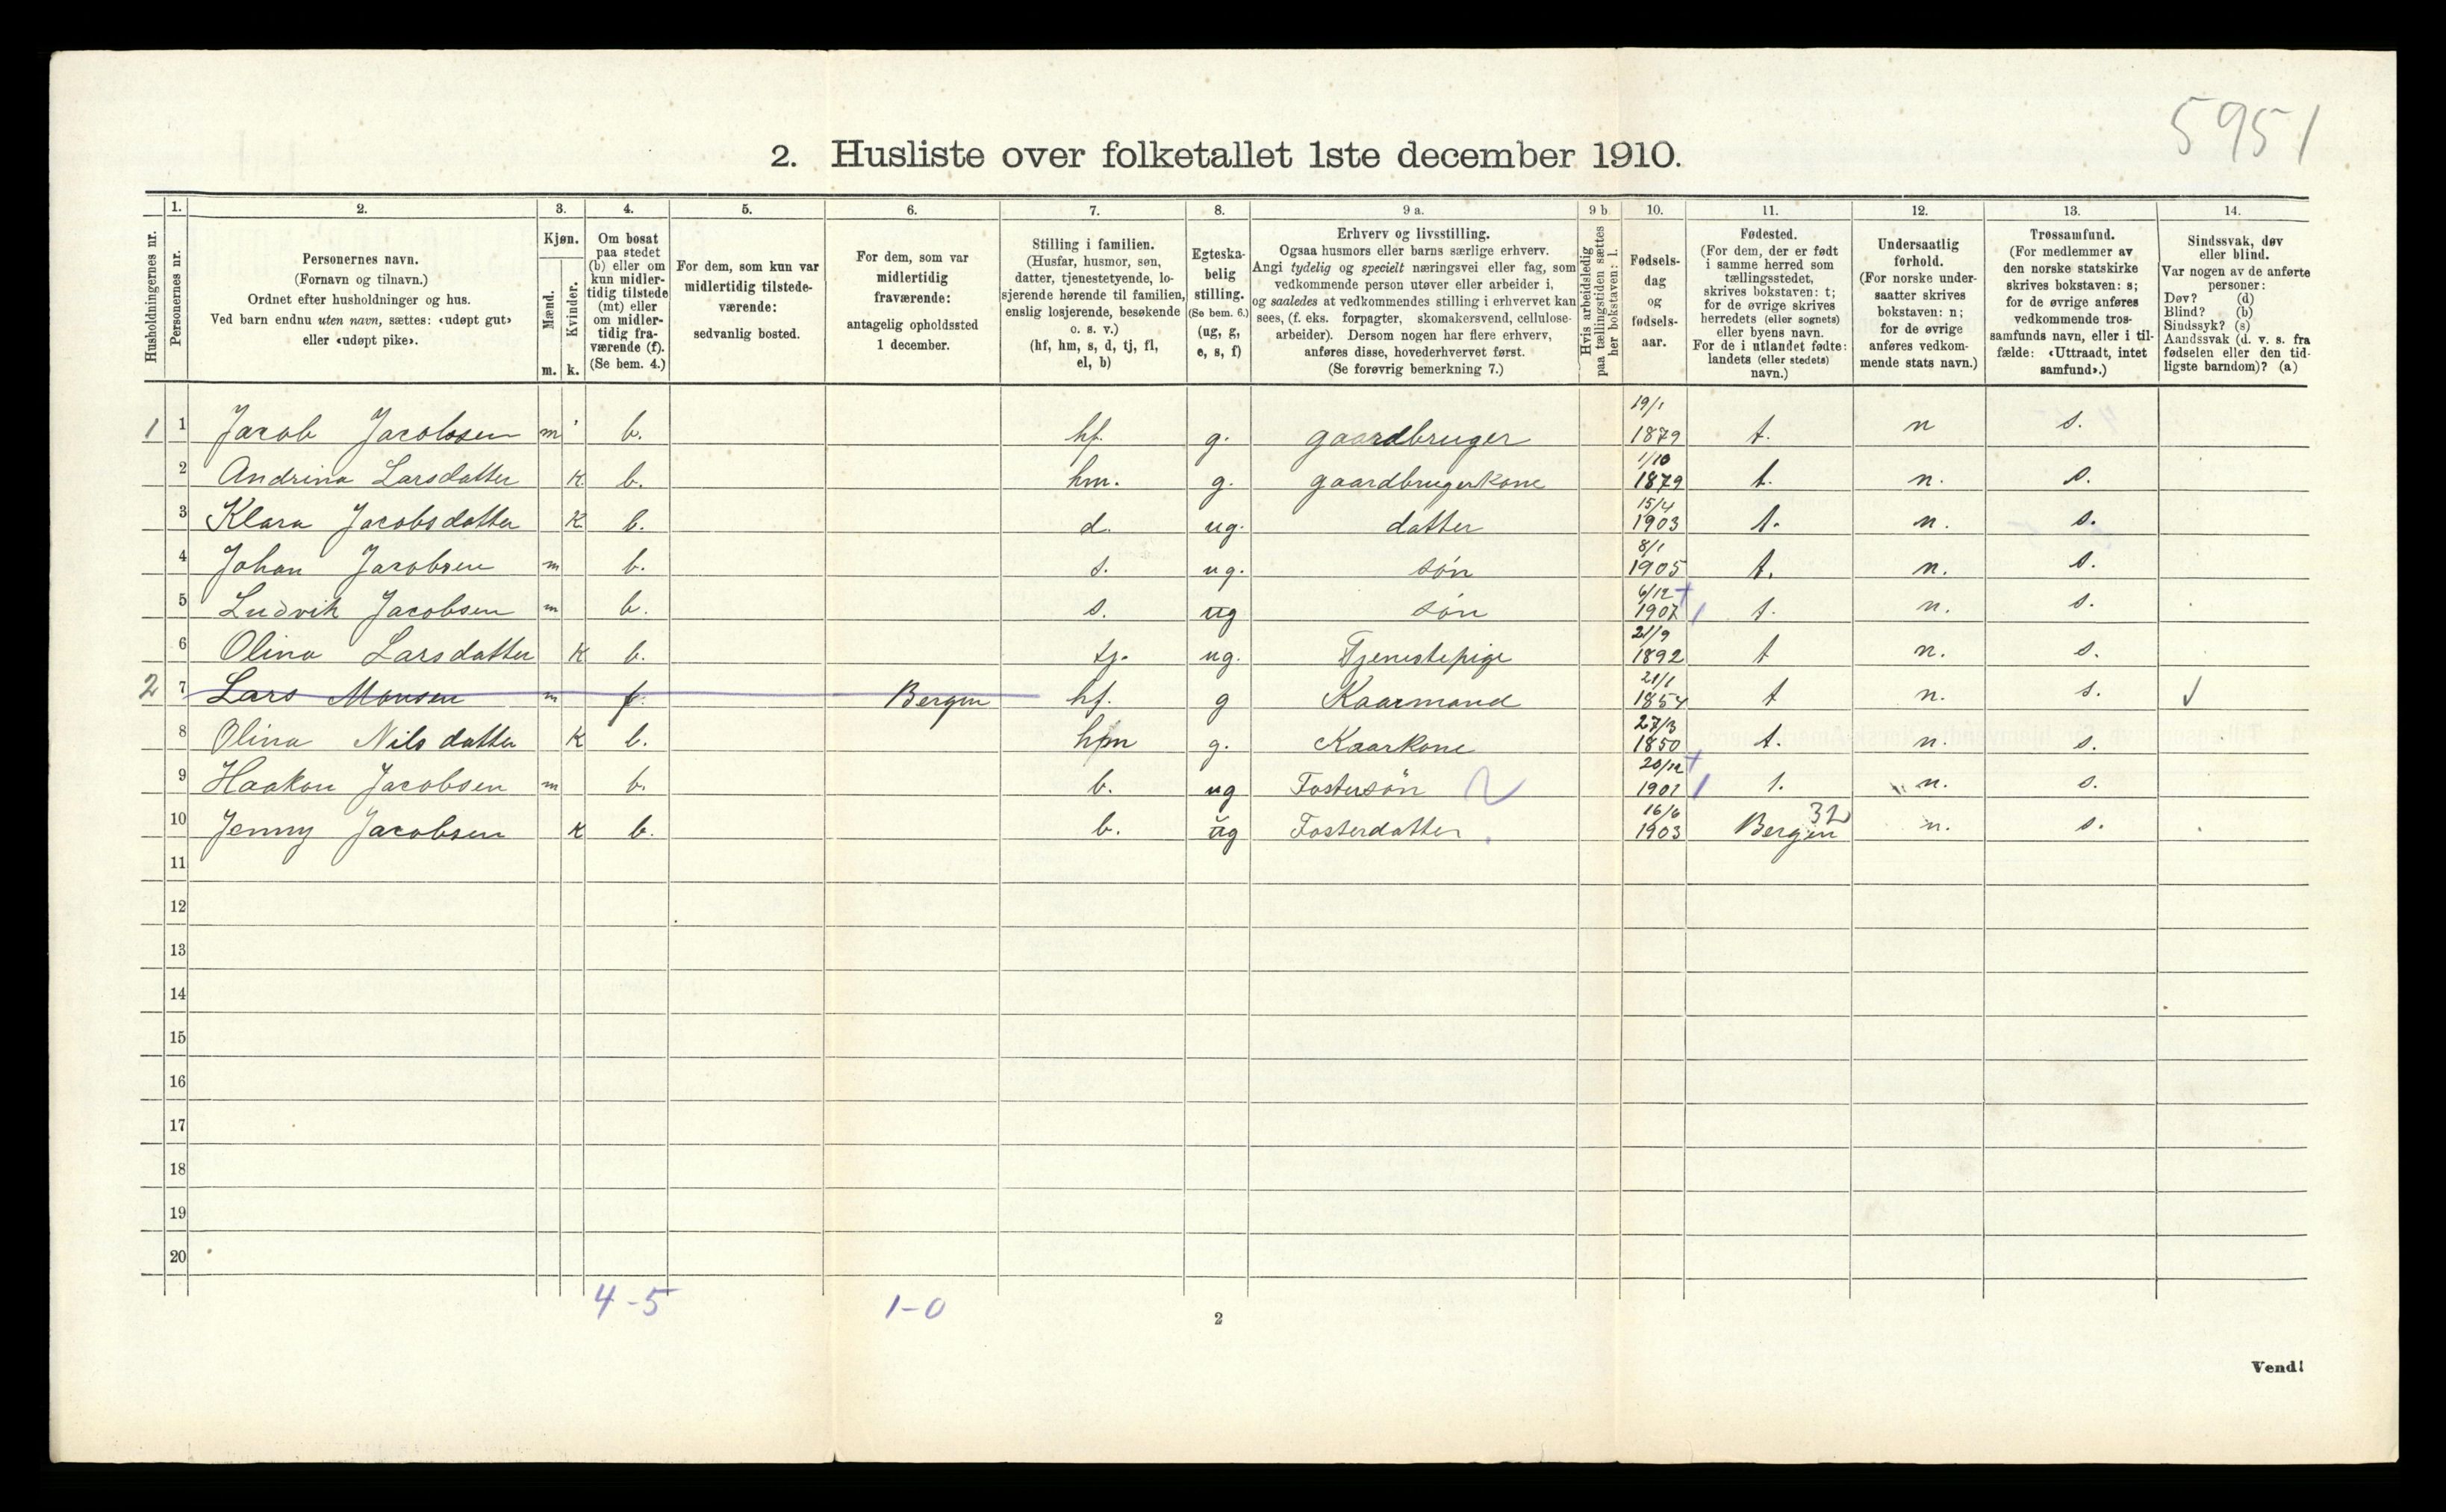 5951
2. Husliste over folketallet 1ste december 1910.
Husholdningernes nr.
1. Personernes nr.
2. Personernes navn.
(Fornavn og tilnavn.)
Ordnet efter husholdninger og hus.
Ved barn endnu uten navn, sættes: «udøpt gut»
eller «udøpt pike».
3. Kjøn.
Mænd. m.
Kvinder. k.
4. Om bosat
paa stedet
(b) eller om
kun midler-
tidig tilstede
(mt) eller
om midler-
tidig fra-
værende (f).
(Se bem. 4.)
5. For dem, som kun var
midlertidig tilstede-
værende:
sedvanlig bosted.
6. For dem, som var
midlertidig
fraværende:
antagelig opholdssted
1 december.
7. Stilling i familien.
(Husfar, husmor, søn,
datter, tjenestetyende, lo-
sjerende hørende til familien,
enslig losjerende, besøkende
o. s. v.)
(hf, hm, s, d, tj, fl,
el, b)
8. Egteska-
belig
stilling.
(Se bem. 6.)
(ug, g,
e, s, f)
9 a. Erhverv og livsstilling.
Ogsaa husmors eller barns særlige erhverv.
Angi tydelig og specielt næringsvei eller fag, som
vedkommende person utøver eller arbeider i,
og saaledes at vedkommendes stilling i erhvervet kan
sees, (f. eks. forpagter, skomakersvend, cellulose-
arbeider). Dersom nogen har flere erhverv,
anføres disse, hovederhvervet først.
(Se forøvrig bemerkning 7.)
9 b. Hvis arbeidsledig
paa tællingstiden sættes
her bokstaven: l.
10. Fødsels-
dag
og
fødsels-
aar.
11. Fødested.
(For dem, der er født
i samme herred som
tællingsstedet,
skrives bokstaven: t;
for de øvrige skrives
herredets (eller sognets)
eller byens navn.
For de i utlandet fødte:
landets (eller stedets)
navn.)
12. Undersaatlig
forhold.
(For norske under-
saatter skrives
bokstaven: n;
for de øvrige
anføres vedkom-
mende stats navn.)
13. Trossamfund.
(For medlemmer av
den norske statskirke
skrives bokstaven: s;
for de øvrige anføres
vedkommende tros-
samfunds navn, eller i til-
fælde: «Uttraadt, intet
samfund».)
14. Sindssvak, døv
eller blind.
Var nogen av de anførte
personer:
Døv? (d)
Blind? (b)
Sindssyk? (s)
Aandssvak (d. v. s. fra
fødselen eller den tid-
ligste barndom)? (a)
1 1 Jacob Jacobsen m b. hf. g. gaardbruger 19/1 1879 t. n s.
2 Andrina Larsdatter K b. hm. g. gaardbrugerkone 1/10 1879 t. n. s.
3 Klara Jacobsdatter K b. d. ug. datter 15/4 1903 t. n. s.
4 Johan Jacobsen m b. s. ug. søn 8/1 1905 t. n. s.
5 Ludvik Jacobsen m b. s. ug søn 6/12 1907 t. n. s.
6 Olina Larsdatter K b. tj. ug. Tjenestepige 21/9 1892 t n. s.
2 7 Lars Monsen m f. Bergen hf. g Kaarmand 21/1 1854 t n. s.
8 Olina Nilsdatter K b. hm g. Kaarkone 27/3 1850 t. n. s.
9 Haakon Jacobsen m b. b. ug Fostersøn 20/12 1901 t. n. s.
10 Jenny Jacobsen K b. b. ug Fosterdatter 16/6 1903 Bergen 32 n. s.
11
12
13
14
15
16
17
18
19
20
4-5 1-0
2
Vend!